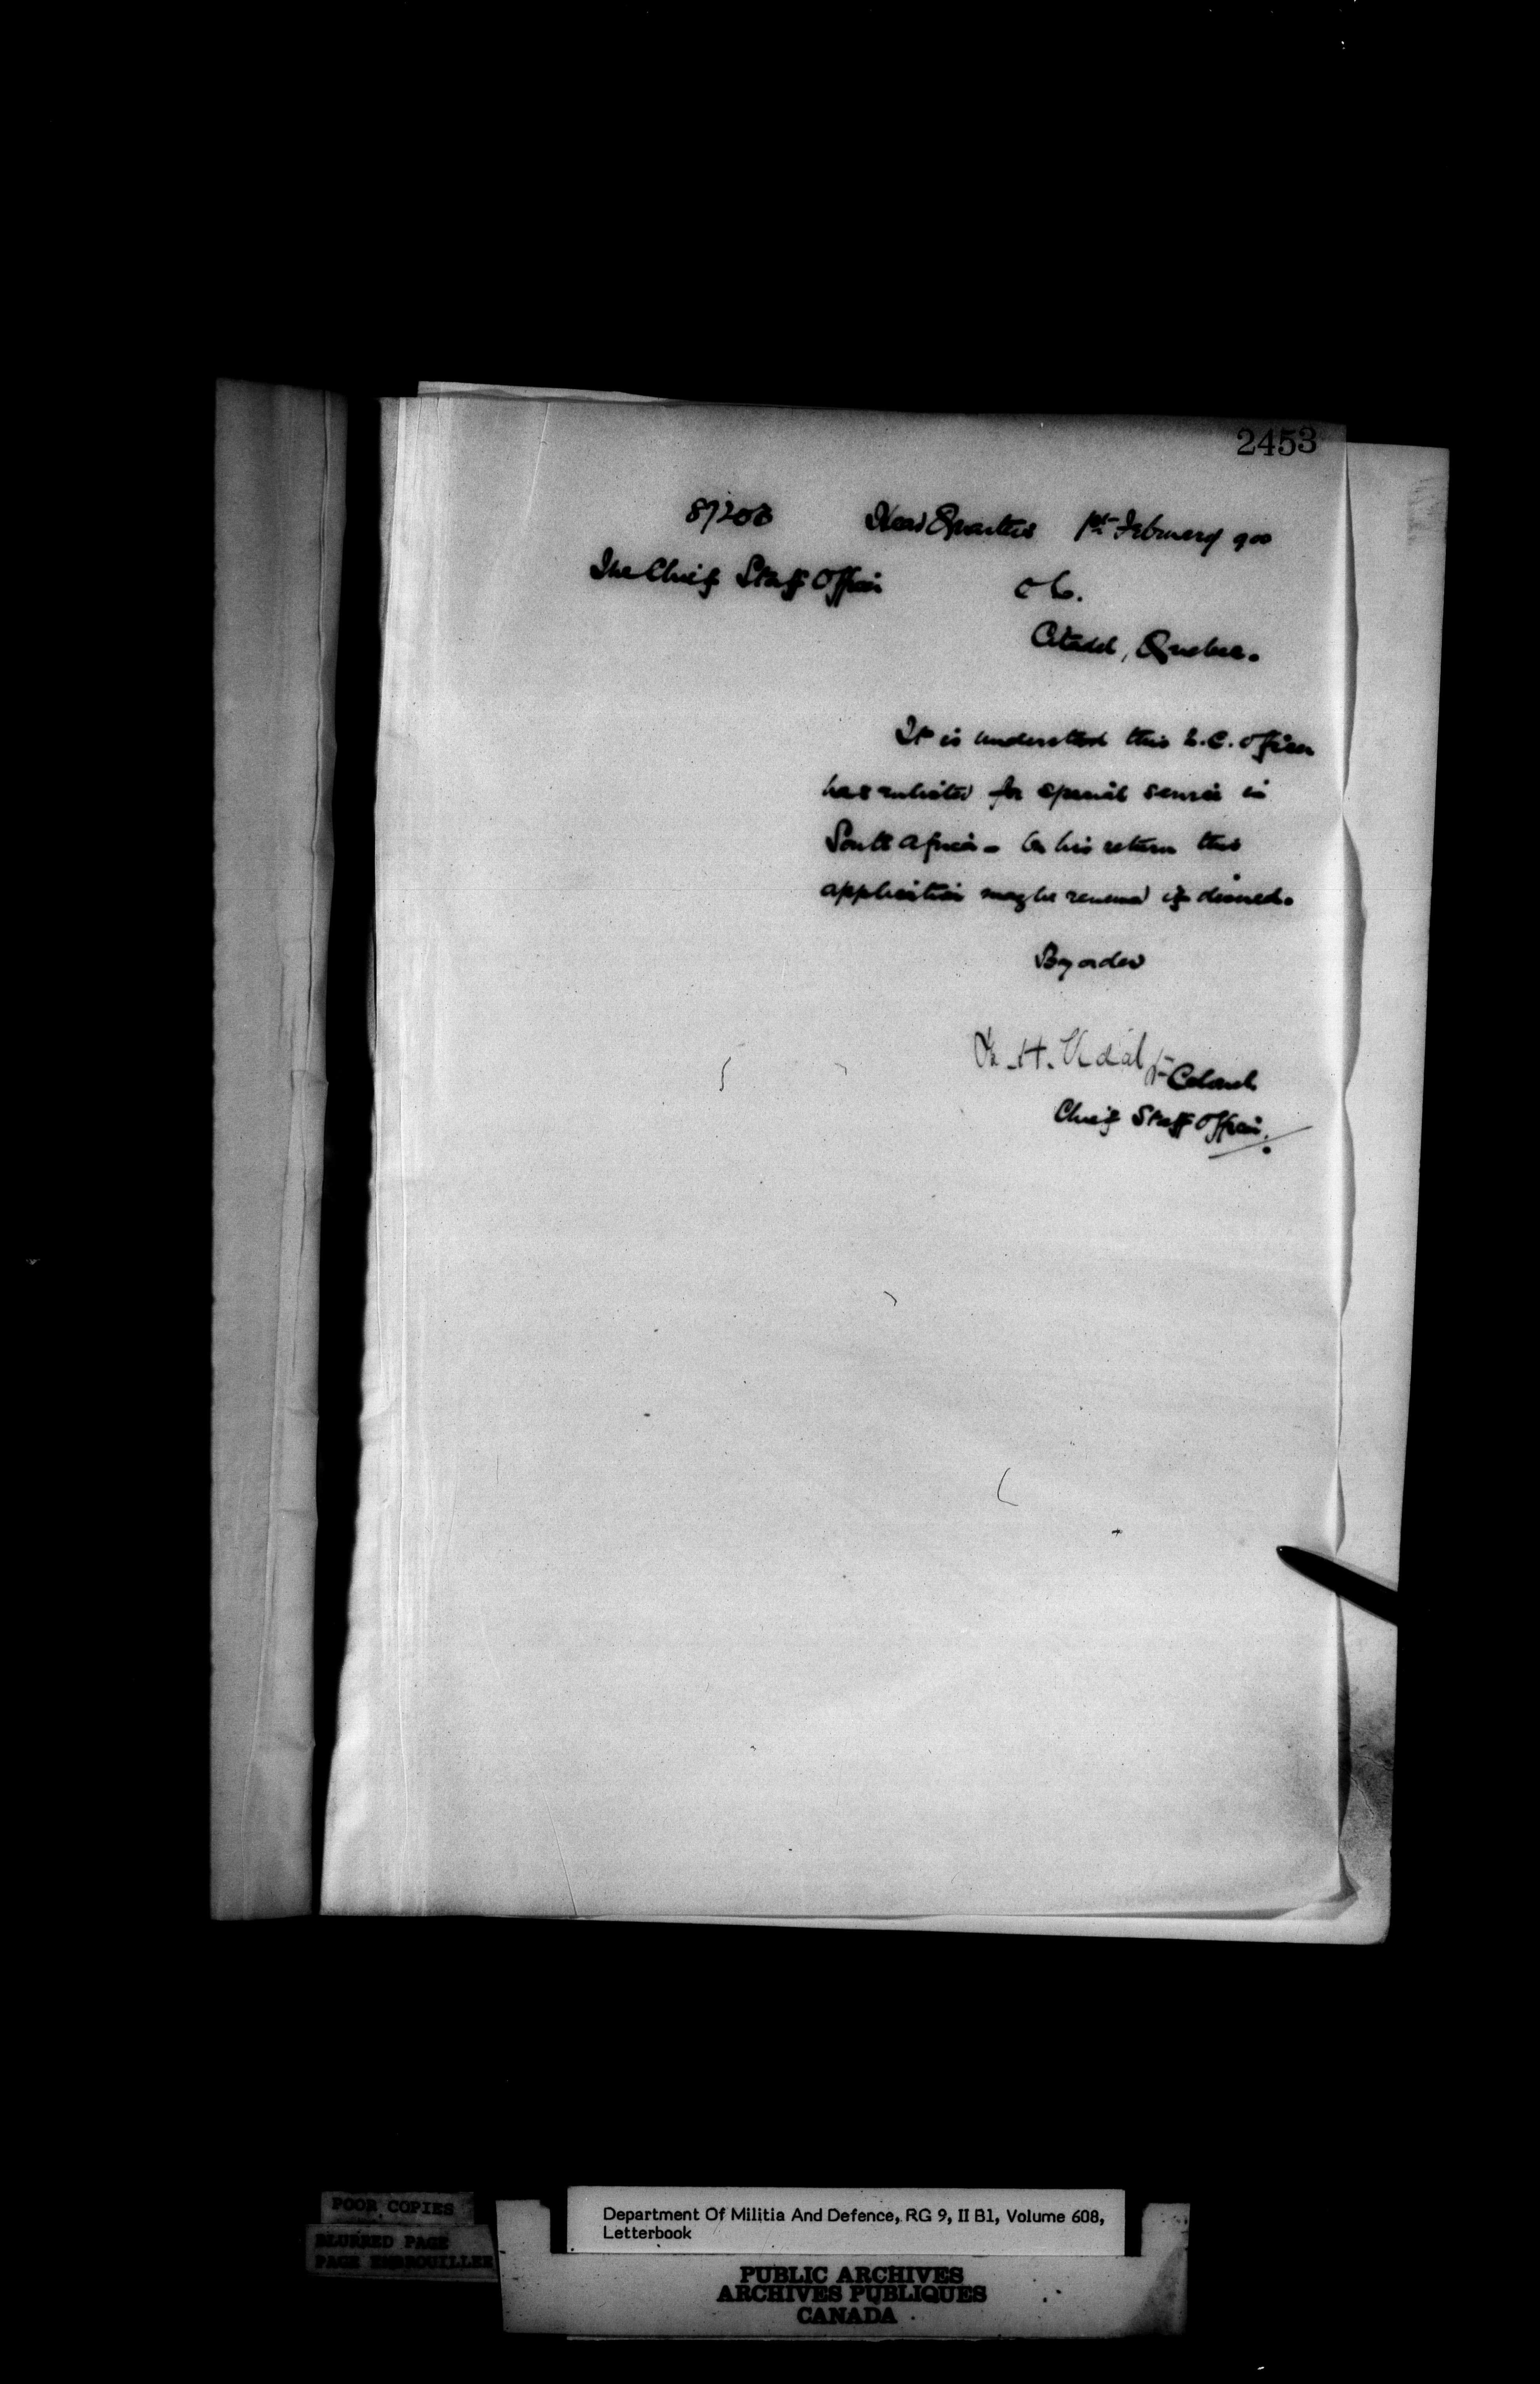 2453
87203 Head Quarters 1st February 900
The Chief Staff Officer
Citadel, Quebec.
It is understood this N.C. Officer
has enlisted for special service in
South Africa - On his return this
application may be renewed if desired.
By order
B. H. Vidal Lt-Colonel
Chief Staff Officer.
POOR COPIES
BLURRED PAGE
PAGE EMBROUILLEE
Department Of Militia And Defence, RG 9, II B1, Volume 608,
Letterbook
PUBLIC ARCHIVES
ARCHIVES PUBLIQUES
CANADA